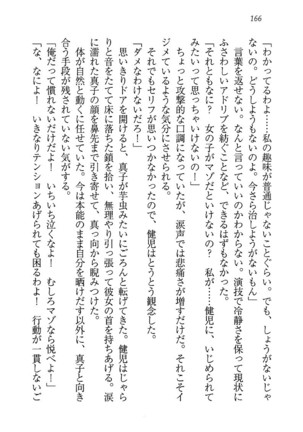 166
「わかってるわよ……私の趣味が普通じゃないことぐらい。でも、しょうがないじゃ
ないの。どうしようもないのよ。今さら治しようがないもん」
言葉を返せない。なんと言っていいのかわからない。演技で冷静さを保って現状に
ふさわしいアドリブを紡ぐことなど、できるはずもない。
「ダメなの？ 私がマゾだといけないの？ 私が……健児に、いじめられて
みたいって思っちゃいけないの！」
ちょっと攻撃的な口調になっていたが、涙声では悲痛さが増すだけだ。それこそイ
ジメているような気分にさせられる。
だからセリフがこぼれたのだ。健児はとうとう観念した。
「ダメなわけないだろ！」
思いきりドアを開けると、真子が芋虫みたいにごろんと転げてきた。健児はじゃら
りと音をたてて床に落ちた鎖を拾い、無理やり引っ張って彼女の首を持ちあげる。涙
に濡れた真子の顔を鼻先まで引き寄せて、真っ向から睨みつけた。
体が自然と動くに任せていた。今は本能のまま自分を晒けだす以外に、真子と向き
合う手段が残されていない気がする。
「俺だって慣れないだけだよ！ いちいち泣くなよ！ むしろマゾなら悦べよ！」
「な、なによ！ いきなりテンションあげられても困るわよ！ 行動が一貫しないご